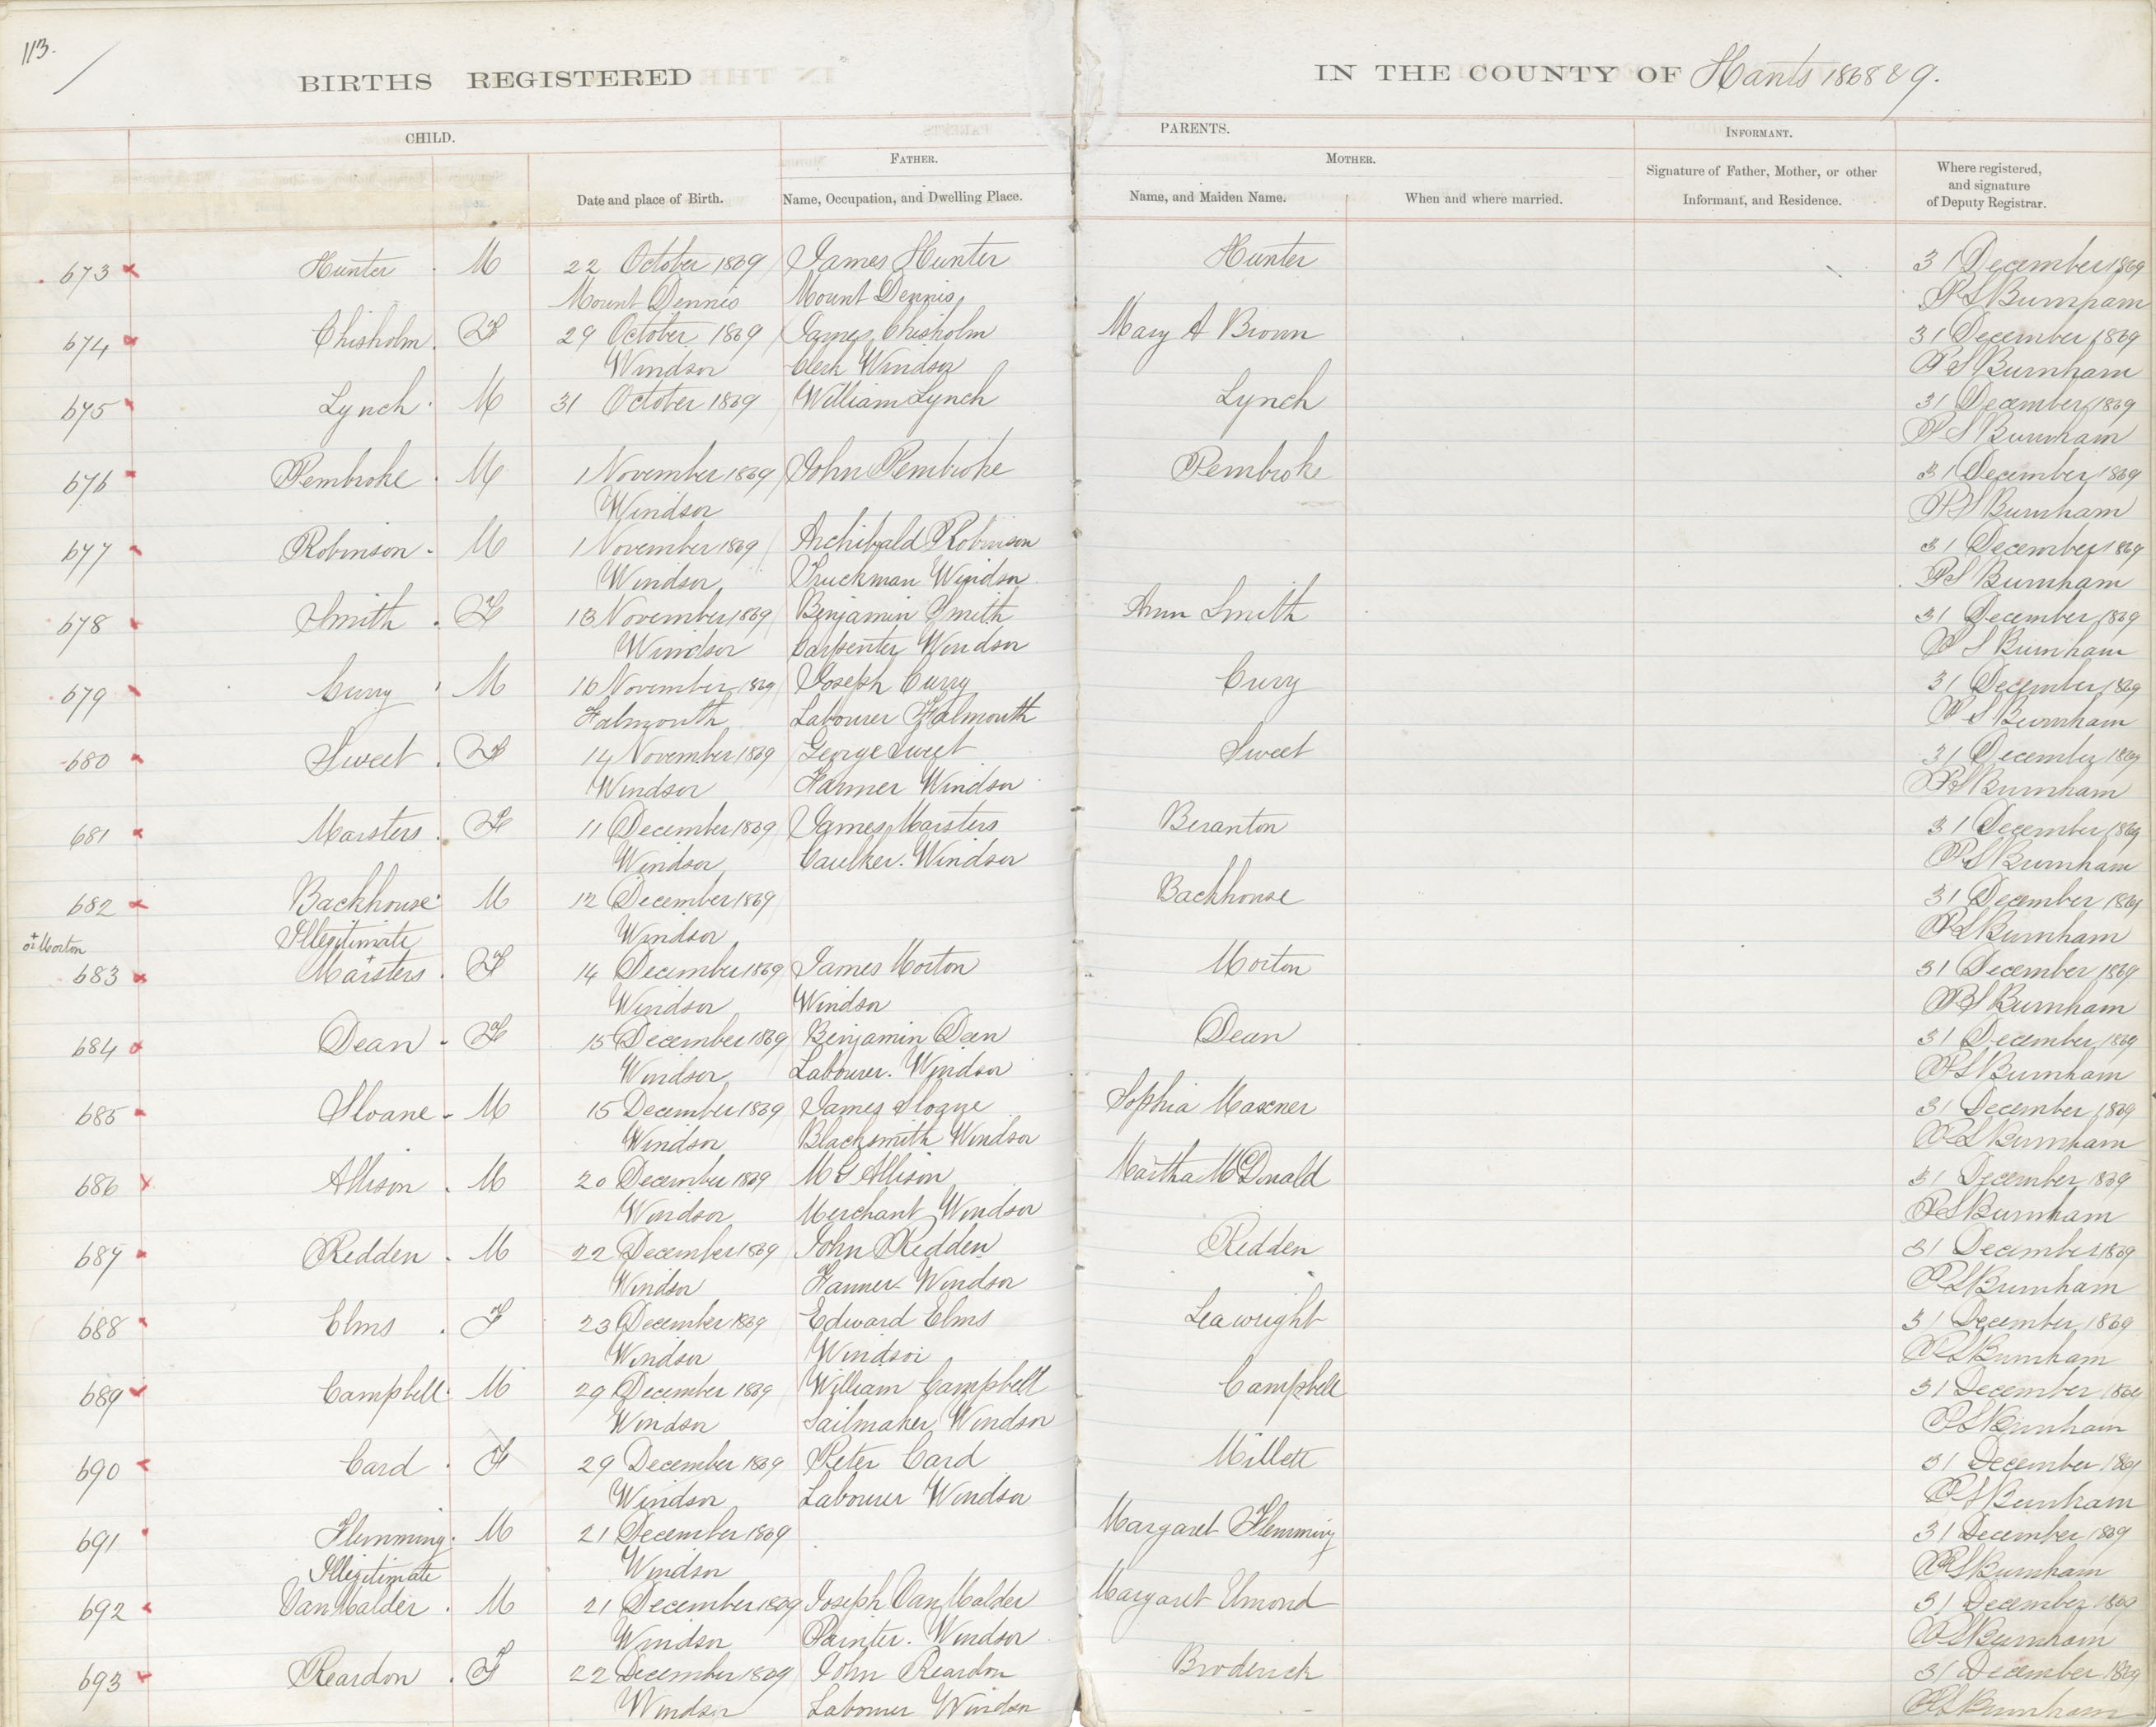 113.
BIRTHS REGISTERED IN THE COUNTY OF Hants 1868 & 9.
CHILD. PARENTS. INFORMANT.
FATHER. MOTHER.
Date and place of Birth. Name, Occupation, and Dwelling Place. Name, and Maiden Name. When and where married. Signature of Father, Mother, or other Informant, and Residence. Where registered, and signature of Deputy Registrar.
673 Hunter M 22 October 1869 James Hunter Hunter 31 December 1869
Mount Dennis Mount Dennis P S Burnham
674 Chisholm F 29 October 1869 James Chisholm Mary A Brown 31 December 1869
Windsor Clerk Windsor P S Burnham
675 Lynch M 31 October 1869 William Lynch Lynch 31 December 1869
P S Burnham
676 Pembroke M 1 November 1869 John Pembroke Pembroke 31 December 1869
Windsor P S Burnham
677 Robinson M 1 November 1869 Archibald Robinson 31 December 1869
Windsor Truckman Windsor P S Burnham
678 Smith F 13 November 1869 Benjamin Smith Ann Smith 31 December 1869
Windsor Carpenter Windsor P S Burnham
679 Curry M 16 November 1869 Joseph Curry Curry 31 December 1869
Falmouth Labourer Falmouth P S Burnham
680 Sweet F 14 November 1869 George Sweet Sweet 31 December 1869
Windsor Farmer Windsor P S Burnham
681 Marsters F 11 December 1869 James Marsters Beranton 31 December 1869
Windsor Caulker. Windsor P S Burnham
682 Backhouse M 12 December 1869 Backhouse 31 December 1869
Illegitimate Windsor P S Burnham
+ or Morton
683 Marsters + F 14 December 1869 James Morton Morton 31 December 1869
Windsor Windsor P S Burnham
684 Dean F 15 December 1869 Benjamin Dean Dean 31 December 1869
Windsor Labourer. Windsor P S Burnham
685 Sloane M 15 December 1869 James Sloane Sophia Maxner 31 December 1869
Windsor Blacksmith Windsor P S Burnham
686 Allison M 20 December 1869 M G Allison Martha McDonald 31 December 1869
Windsor Merchant Windsor P S Burnham
687 Redden M 22 December 1869 John Redden Redden 31 December 1869
Windsor Farmer Windsor P S Burnham
688 Elms F 23 December 1869 Edward Elms Leawright 31 December 1869
Windsor Windsor P S Burnham
689 Campbell M 29 December 1869 William Campbell Campbell 31 December 1869
Windsor Sailmaker Windsor P S Burnham
690 Card F 29 December 1869 Peter Card Millett 31 December 1869
Windsor Labourer Windsor P S Burnham
691 Flemming M 21 December 1869 Margaret Flemming 31 December 1869
Illegitimate Windsor P S Burnham
692 Van Malder M 21 December 1869 Joseph Van Malder Margaret Elmond 31 December 1869
Windsor Painter. Windsor P S Burnham
693 Reardon F 22 December 1869 John Reardon Broderick 31 December 1869
Windsor Labourer Windsor P S Burnham